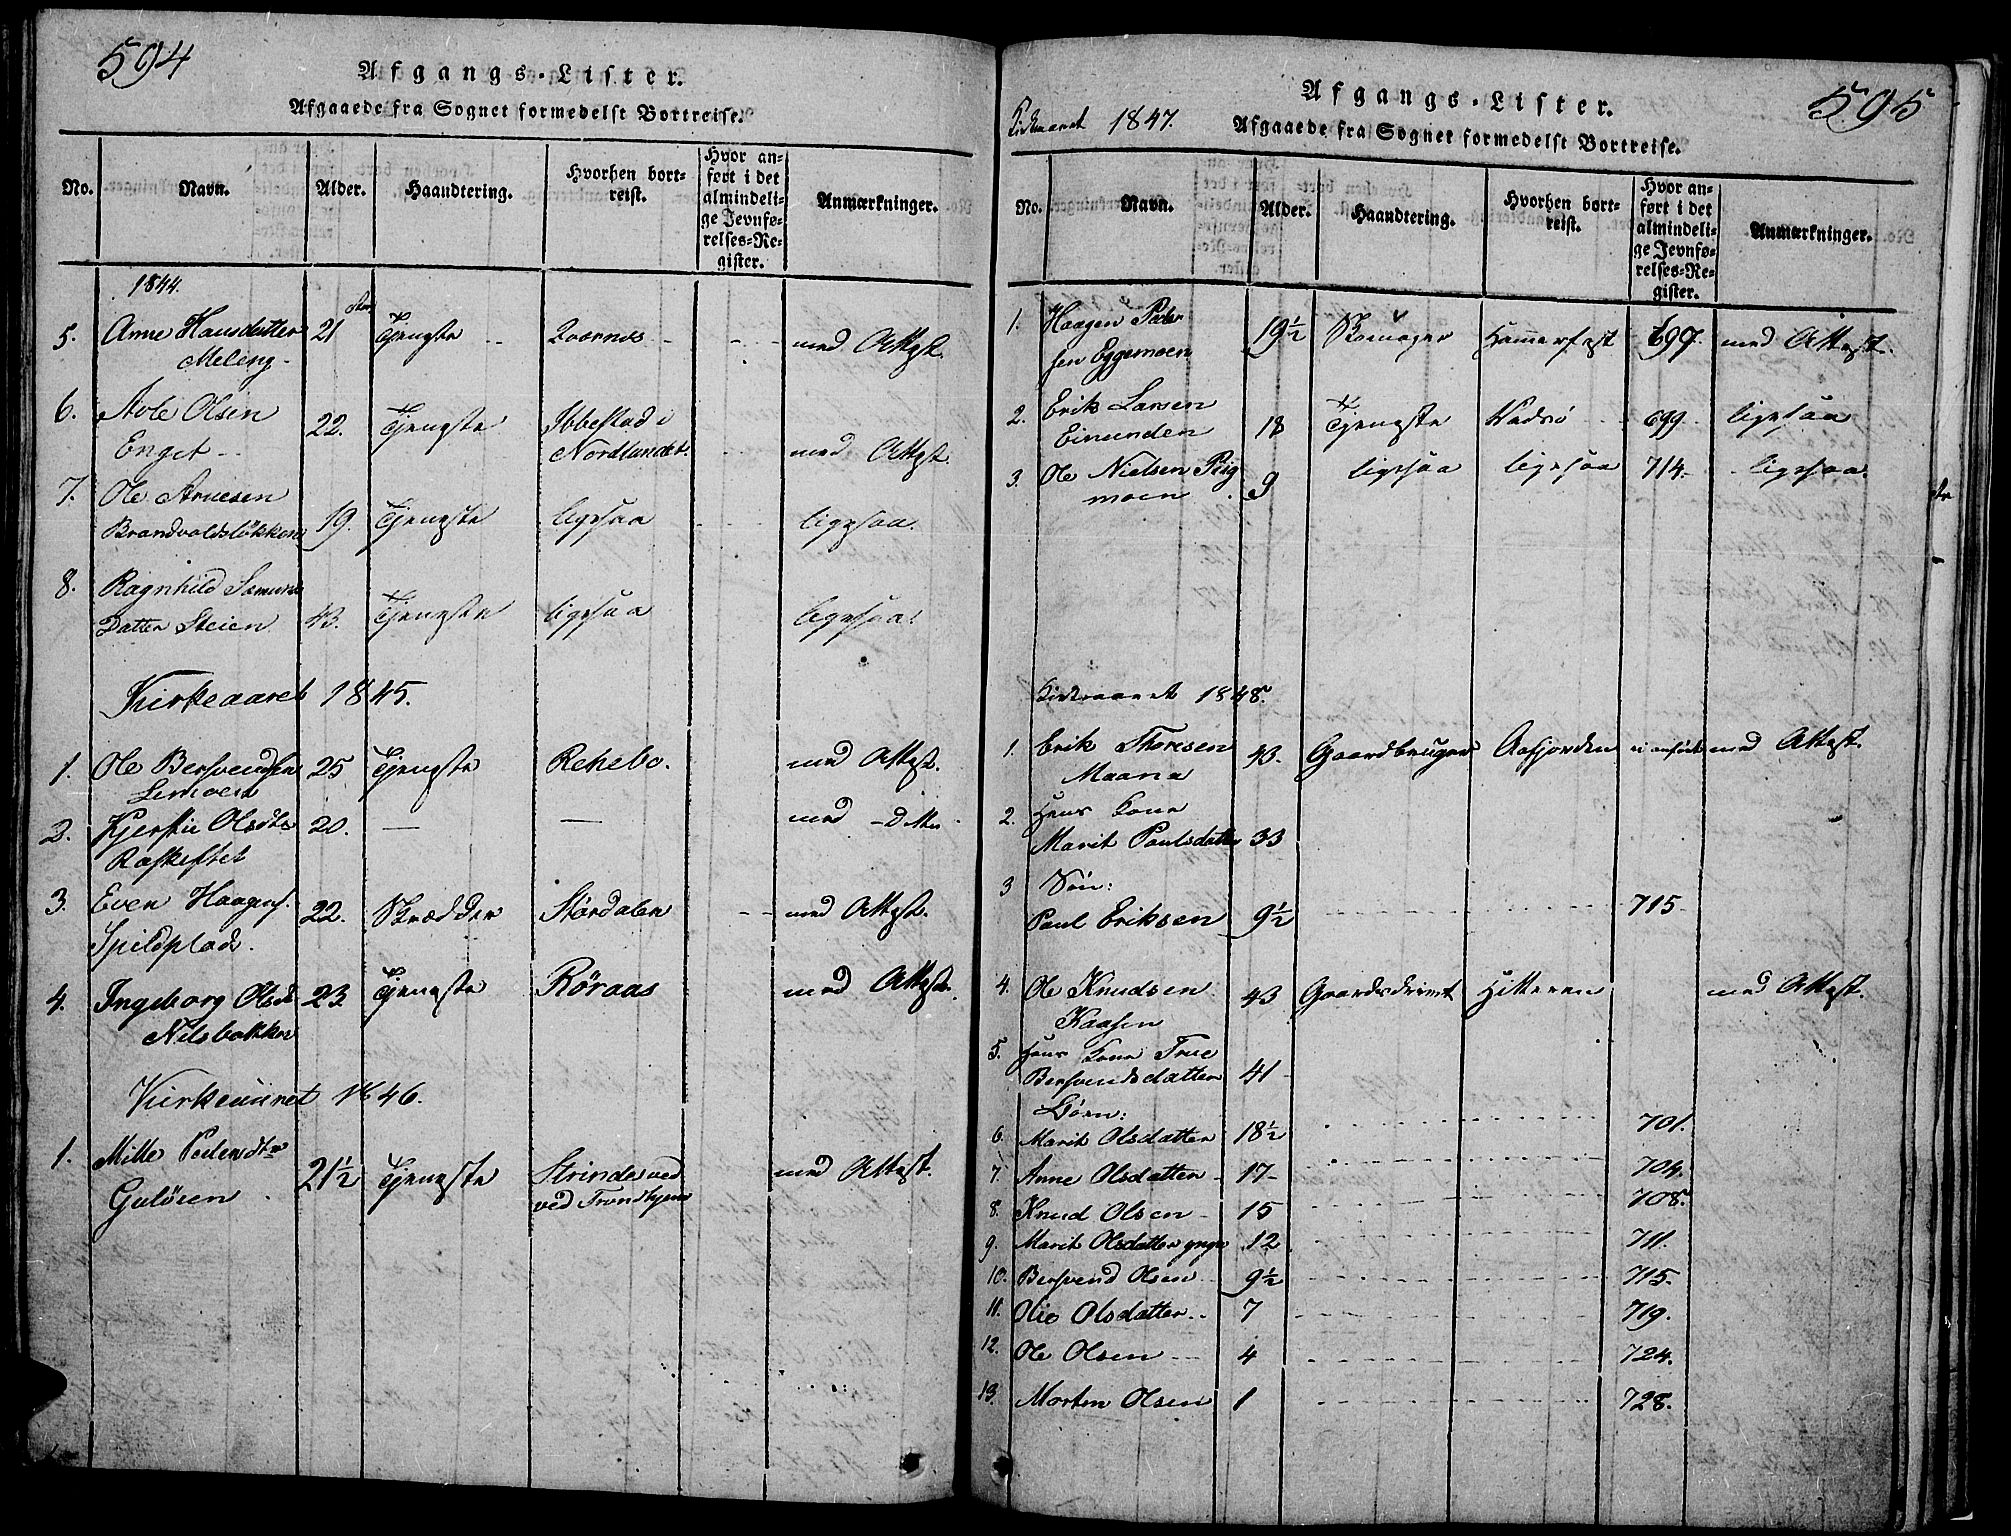 594
Afgangs-Lister.
Afgaaede fra Sognet formedelst Bortreise.
No. Navn. Alder. Haandtering. Hvorhen bortreist. Hvor anført i det almindelige Jevnførelses-Register. Anmærkninger.
1844.
5. Anne Hansdatter 21 Tjeneste med Attest.
Meleng
6. Enget 22. Tjeneste Ibbestad i Nordlandet. med Attest.
7. Ole Arnesen
Brandvoldsløkken 19. Tjeneste ligesaa ligesaa.
8. Ragnhild
Datter Steien 43. Tjeneste ligesaa ligesaa.
Kirkeaaret 1845.
1. Ole Bersvendsen 25 Tjeneste med Attest.
2. Kjersti Olsdtr 20. — — med
3. Even Haagens. 22. Skrædder Størdalen med Attest.
Spildplads.
4. Ingeborg Olsd 23 Tjeneste Røraas med Attest.
Nilsbakken
Kirkeaaret 1846.
1. Mille Pedersdtr 21½ Tjeneste Strinde ved med Attest.
Guløien ved Trondhjem
595
Afgangs-Lister.
Kirkeaaret 1847.
Afgaaede fra Sognet formedelst Bortreise.
No. Navn. Alder. Haandtering. Hvorhen bortreist. Hvor anført i det almindelige Jevnførelses-Register. Anmærkninger.
1. Haagen Peder
sen Eggemoen 19½ Skomager Hammerfest 697. med Attest.
2. Erik Larsen
Einunden 18 Tjeneste Vadsö 699. ligesaa
3. Ole Nielsen
moen 9 ligesaa ligesaa 714. ligesaa.
Kirkeaaret 1848.
1. Erik Thoresen 43. Gaardbruger Aafjorden ei anført med Attest.
Maana
2. Hans Kone
Marit Paulsdatter 33
3 Søn:
Paul Eriksen 9½ 715
4. Ole Knudsen 43 Gaardsdreng Hitteren med Attest.
Kaasen
5. Hans Kone
Bersvendsdatter 41
Børn:
6. Marit Olsdatter 18½ 701.
7. Anne Olsdatter 17 704.
8. Knud Olsen 15 708.
9. Marit Olsdatter yngr 12 711.
10. Bersvend Olsen 9½ 715.
11. Olie Olsdatter 7 719.
12. Ole Olsen 4 724.
13. Morten Olsen 1 728.